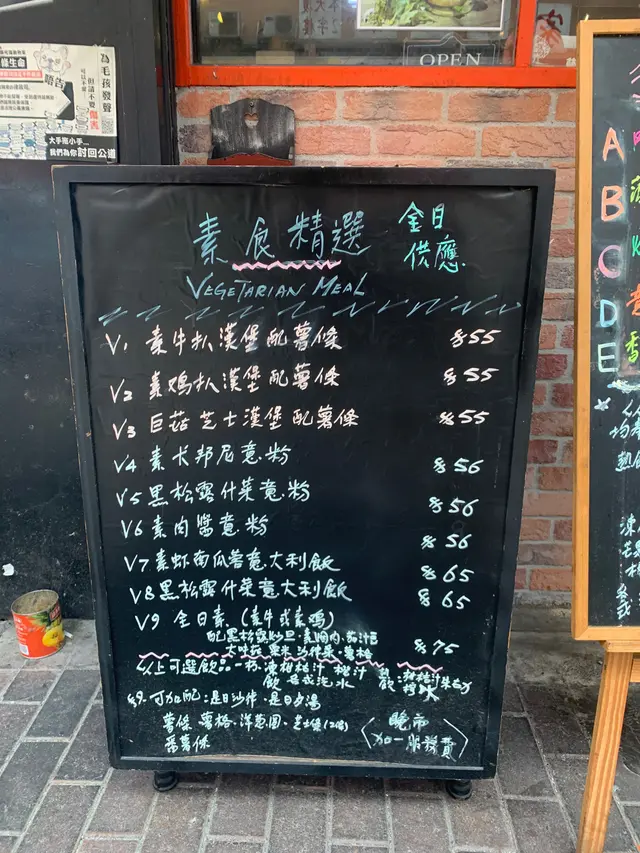 為毛孩發聲
但請不要傷害
大手拖小手...
我們為你討回公道
OPEN
素食精選
全日
供應
VEGETARIAN MEAL
V1 素牛扒漢堡配薯條 $55
V2 素鷄扒漢堡配薯條 $55
V3 巨菇芝士漢堡配薯條 $55
V4 素卡邦尼意粉 $56
V5 黑松露什菜意粉 $56
V6 素肉醬意粉 $56
V7 素虾南瓜薯意大利飯 $65
V8 黑松露什菜意大利飯 $65
V9 全日素 (素牛或素鷄)
配黑松露炒旦、素腸肉、茄汁豆
大啡菇、粟米、沙律菜、薯格 $75
以上可選飲品一杯: 凍柑桔汁 橙汁
飲 品或汽水
$9. 可加配: 是日沙律、是日夕湯
薯條、薯格、洋葱圈、
蕃薯條
晚市
加一服務費
A
B
C
D
E